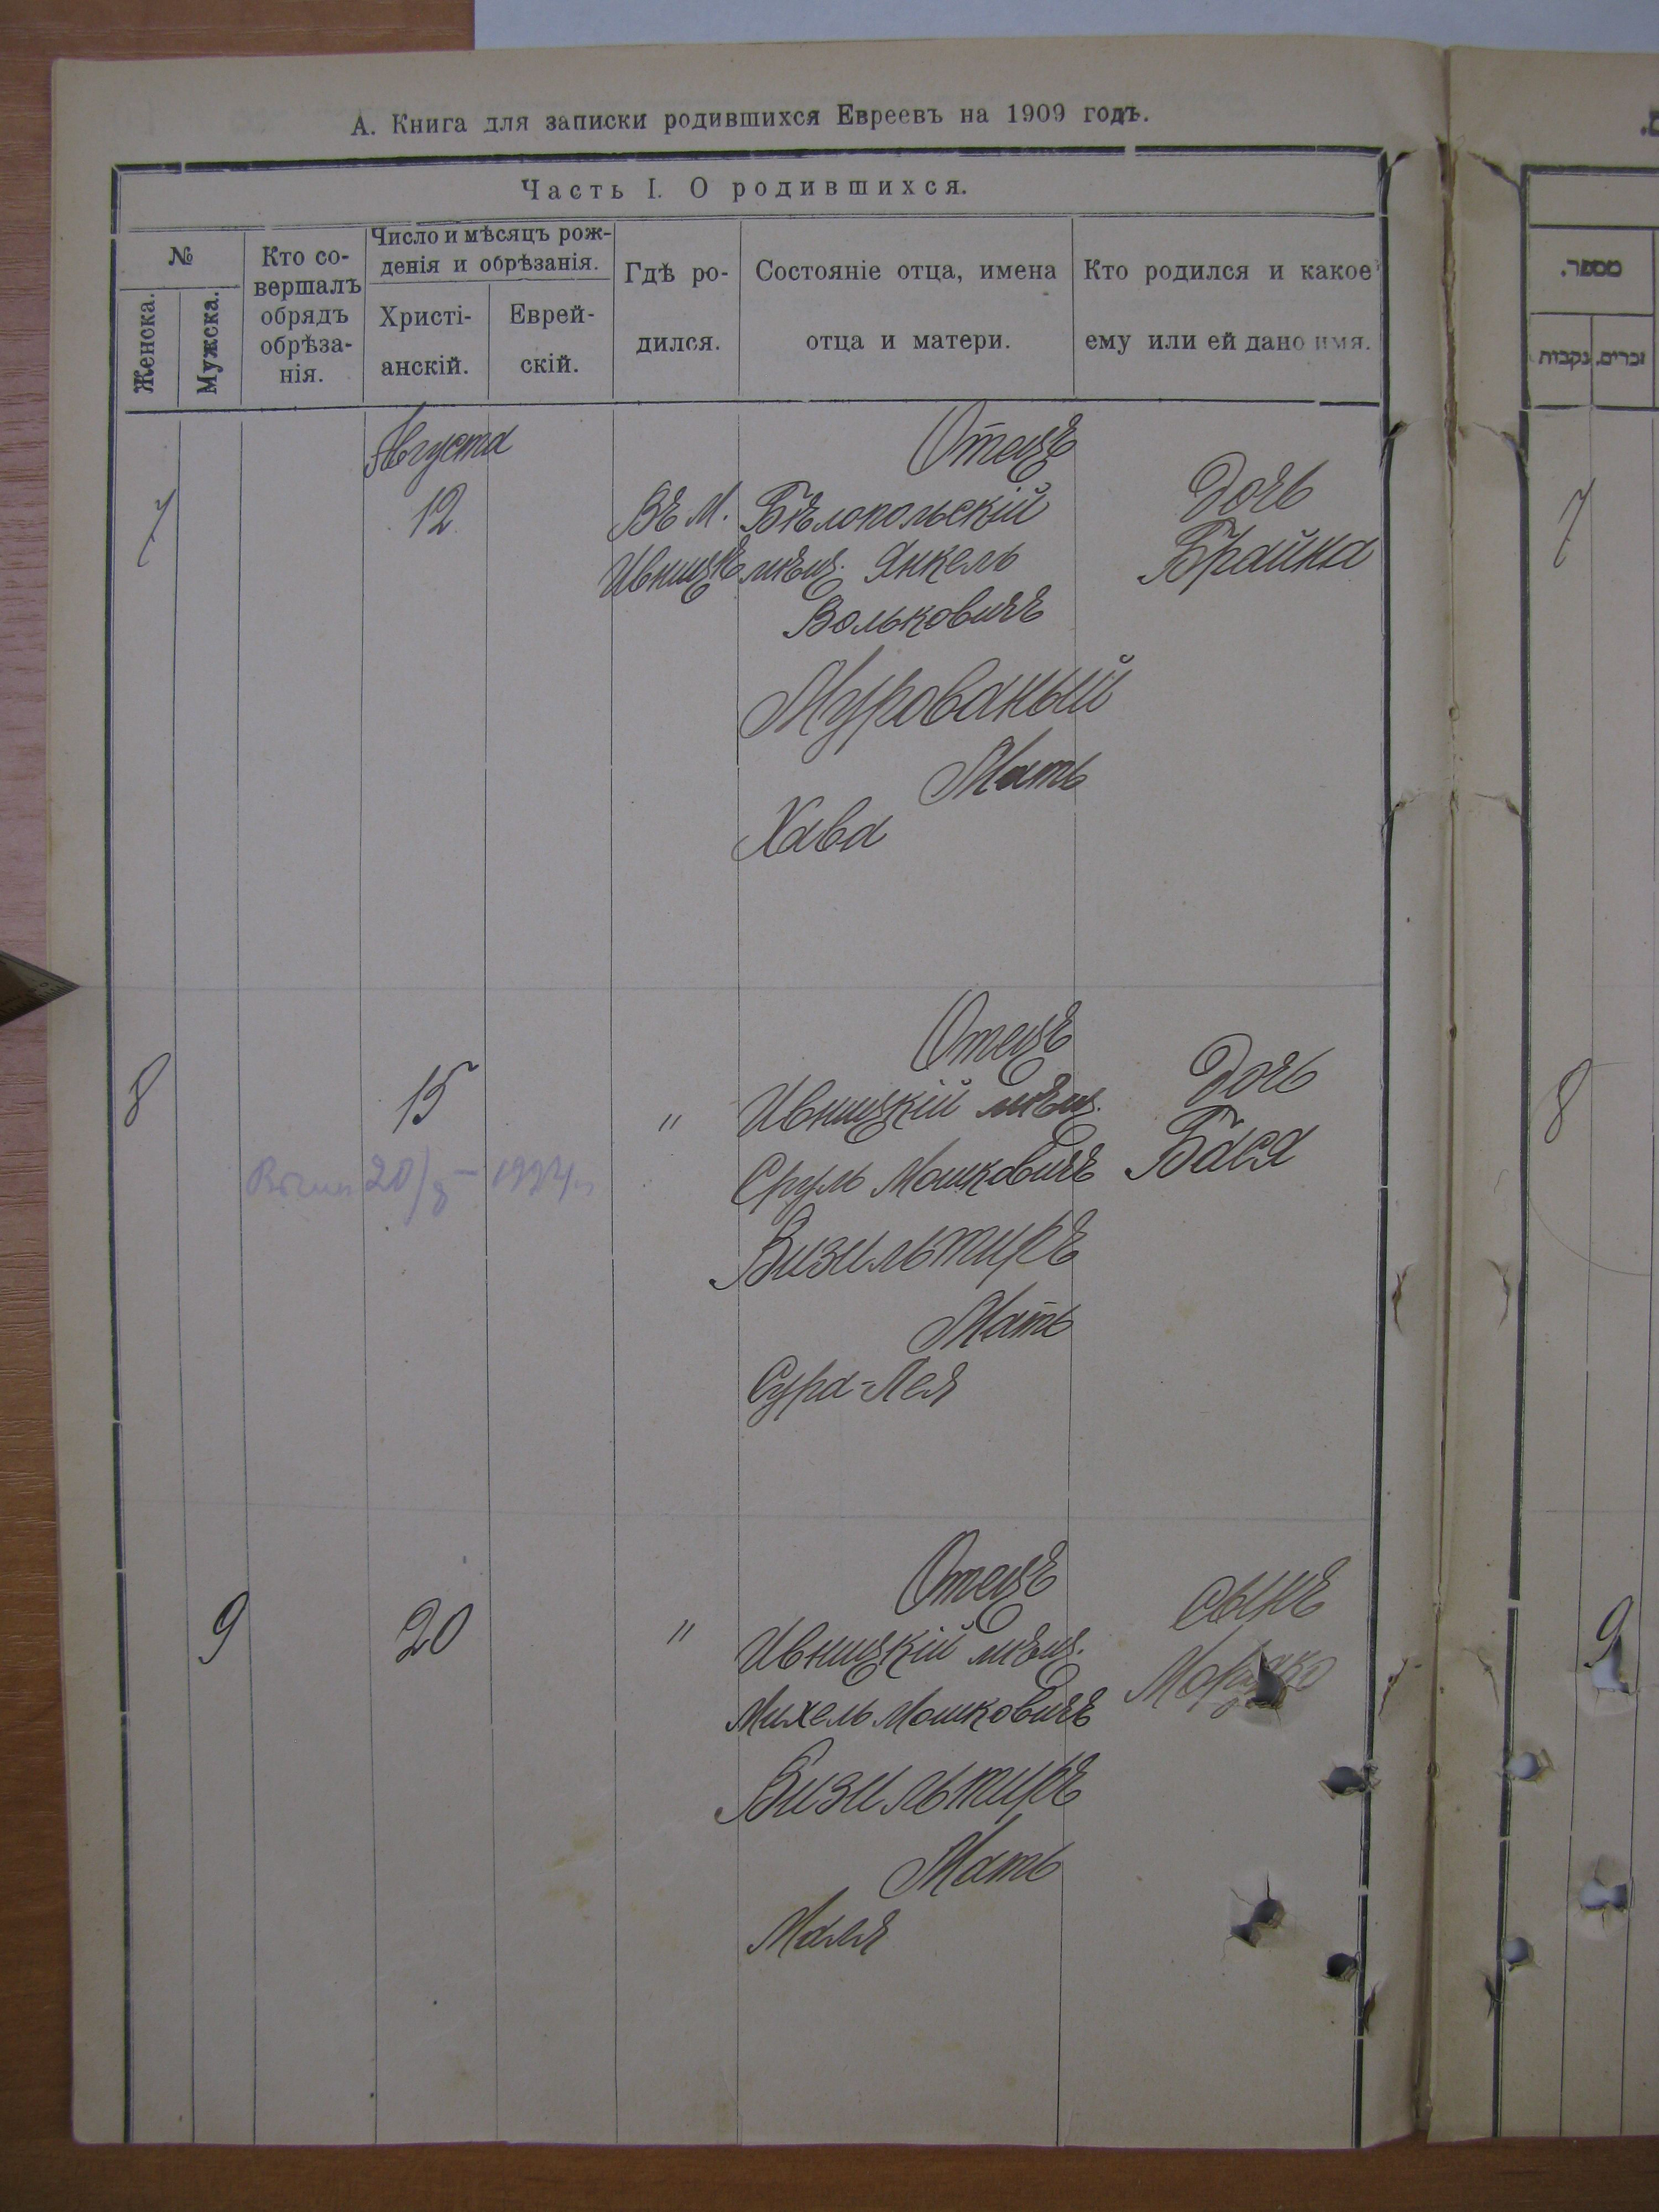 А. Книга для записки родившихся Евреевъ на 1909 годъ.
Часть I. О родившихся.
№
Женска.
Мужска.
Кто со-
вершалъ
обрядъ
обрѣза-
нія.
Число и мѣсяцъ рож-
денія и обрѣзанія.
Христі-
анскій.
Еврей-
скій.
Гдѣ ро-
дился.
Состояніе отца, имена
отца и матери.
Кто родился и какое
ему или ей дано имя.
מספר.
זכרים.
נקבות
Августа
7
12
Въ М.
Ивницѣ
Отецъ
Бѣлопольскій
мѣщ. Янкель
Вольковичъ
Мурованый
Мать
Хава
Дочь
Брайна
7
8
15
"
Отецъ
Ивницкій мѣщ.
Сруль Мошковичъ
Визильтиръ
Мать
Сура-Лея
Дочь
Бася
20/ 1924
8
9
20
"
Отецъ
Ивницкій мѣщ.
Михель Мошковичъ
Визильтиръ
Мать
Маля
Сынъ
9